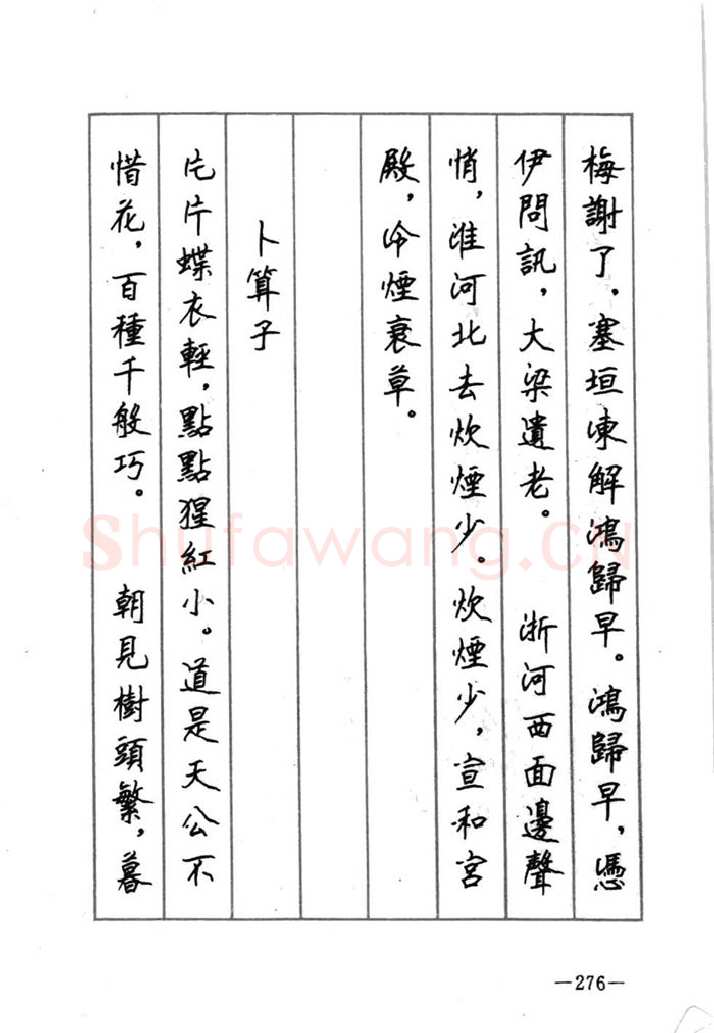 梅謝了。塞垣凍解鴻歸早。鴻歸早，憑
伊問訊，大梁遺老。　浙河西面邊聲
悄，淮河北去炊煙少。炊煙少，宣和宮
殿，冷煙衰草。
卜算子
片片蝶衣輕，點點猩紅小。道是天公不
惜花，百種千般巧。　朝見樹頭繁，暮
Shufawang.CN
—276—